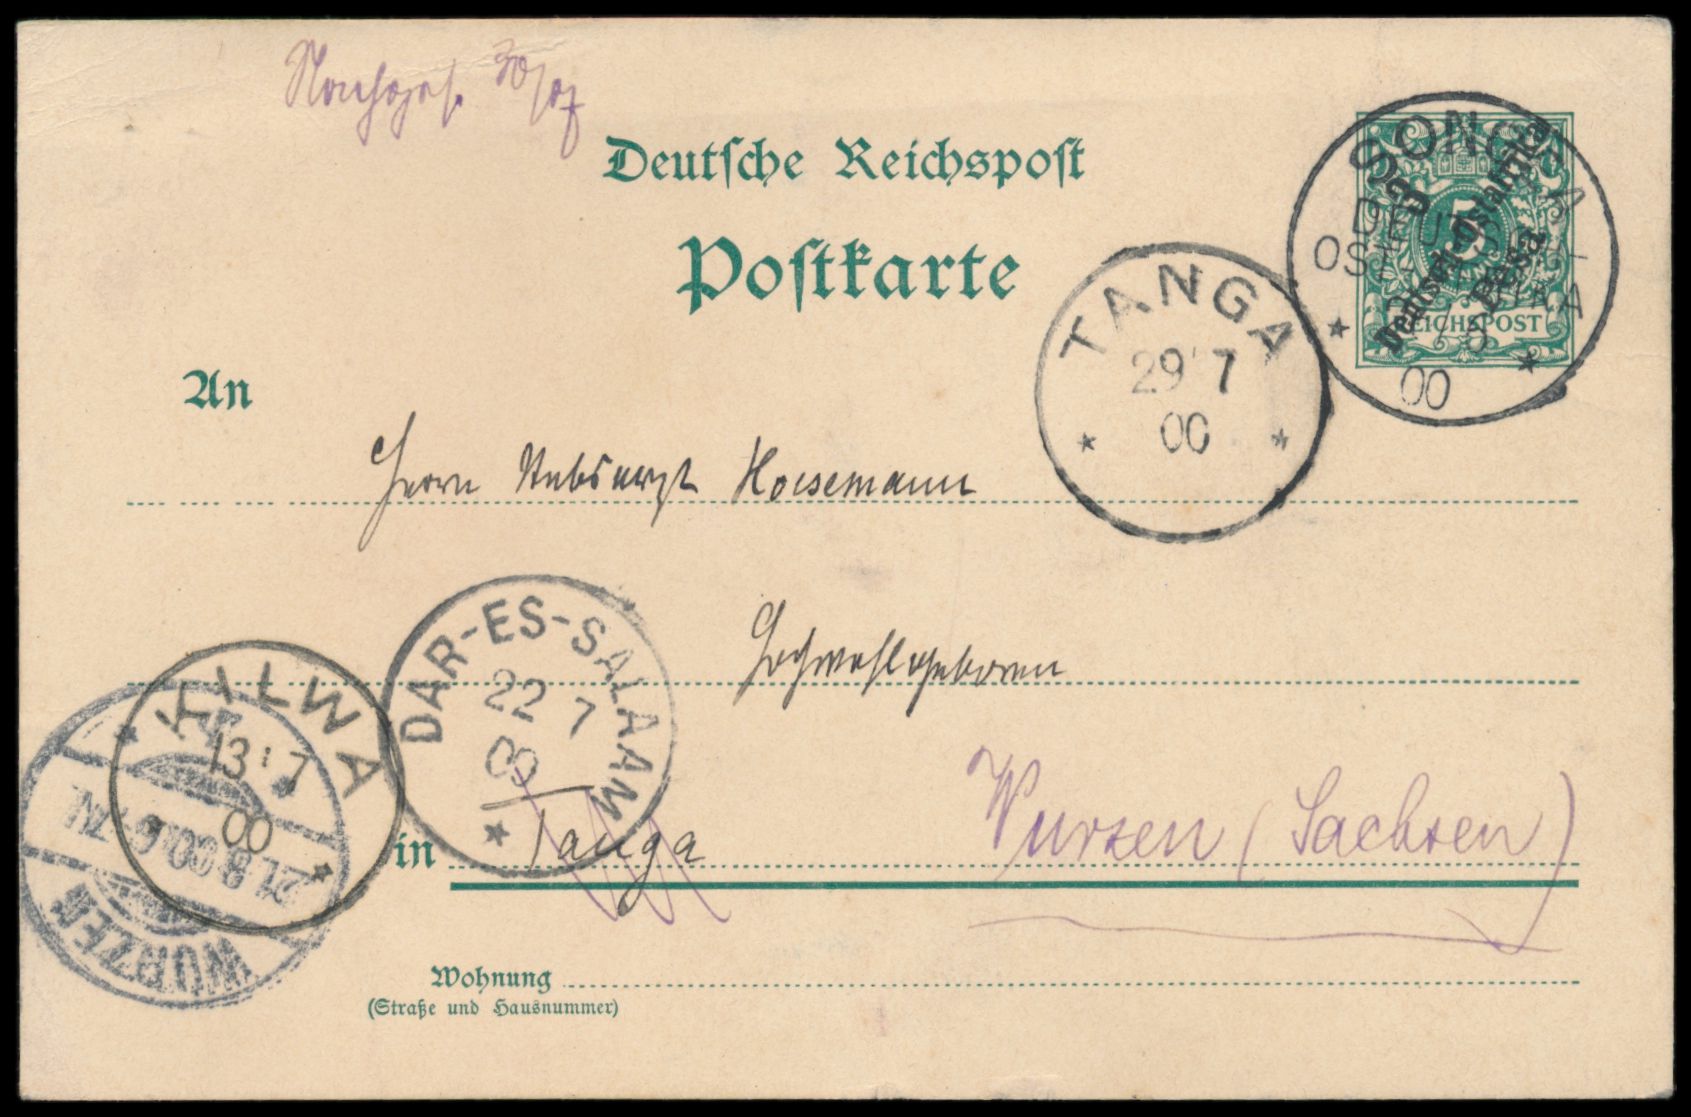 Nachges. 30/9
Deutsche Reichspost
Postkarte
SONGEA
DEUTSCH-
OSTAFRIKA
00
Deutsch-Ostafrika
3 Pesa
5
REICHSPOST
TANGA
29 7
00
An
Herrn Stabsarzt Hoesemann
Hochwohlgeboren
KILWA
13 7
00
DAR-ES-SALAAM
22 7
00
WURZEN
21.8.00.6-7N.
in Tanga Wurzen (Sachsen)
Wohnung
(Straße und Hausnummer)